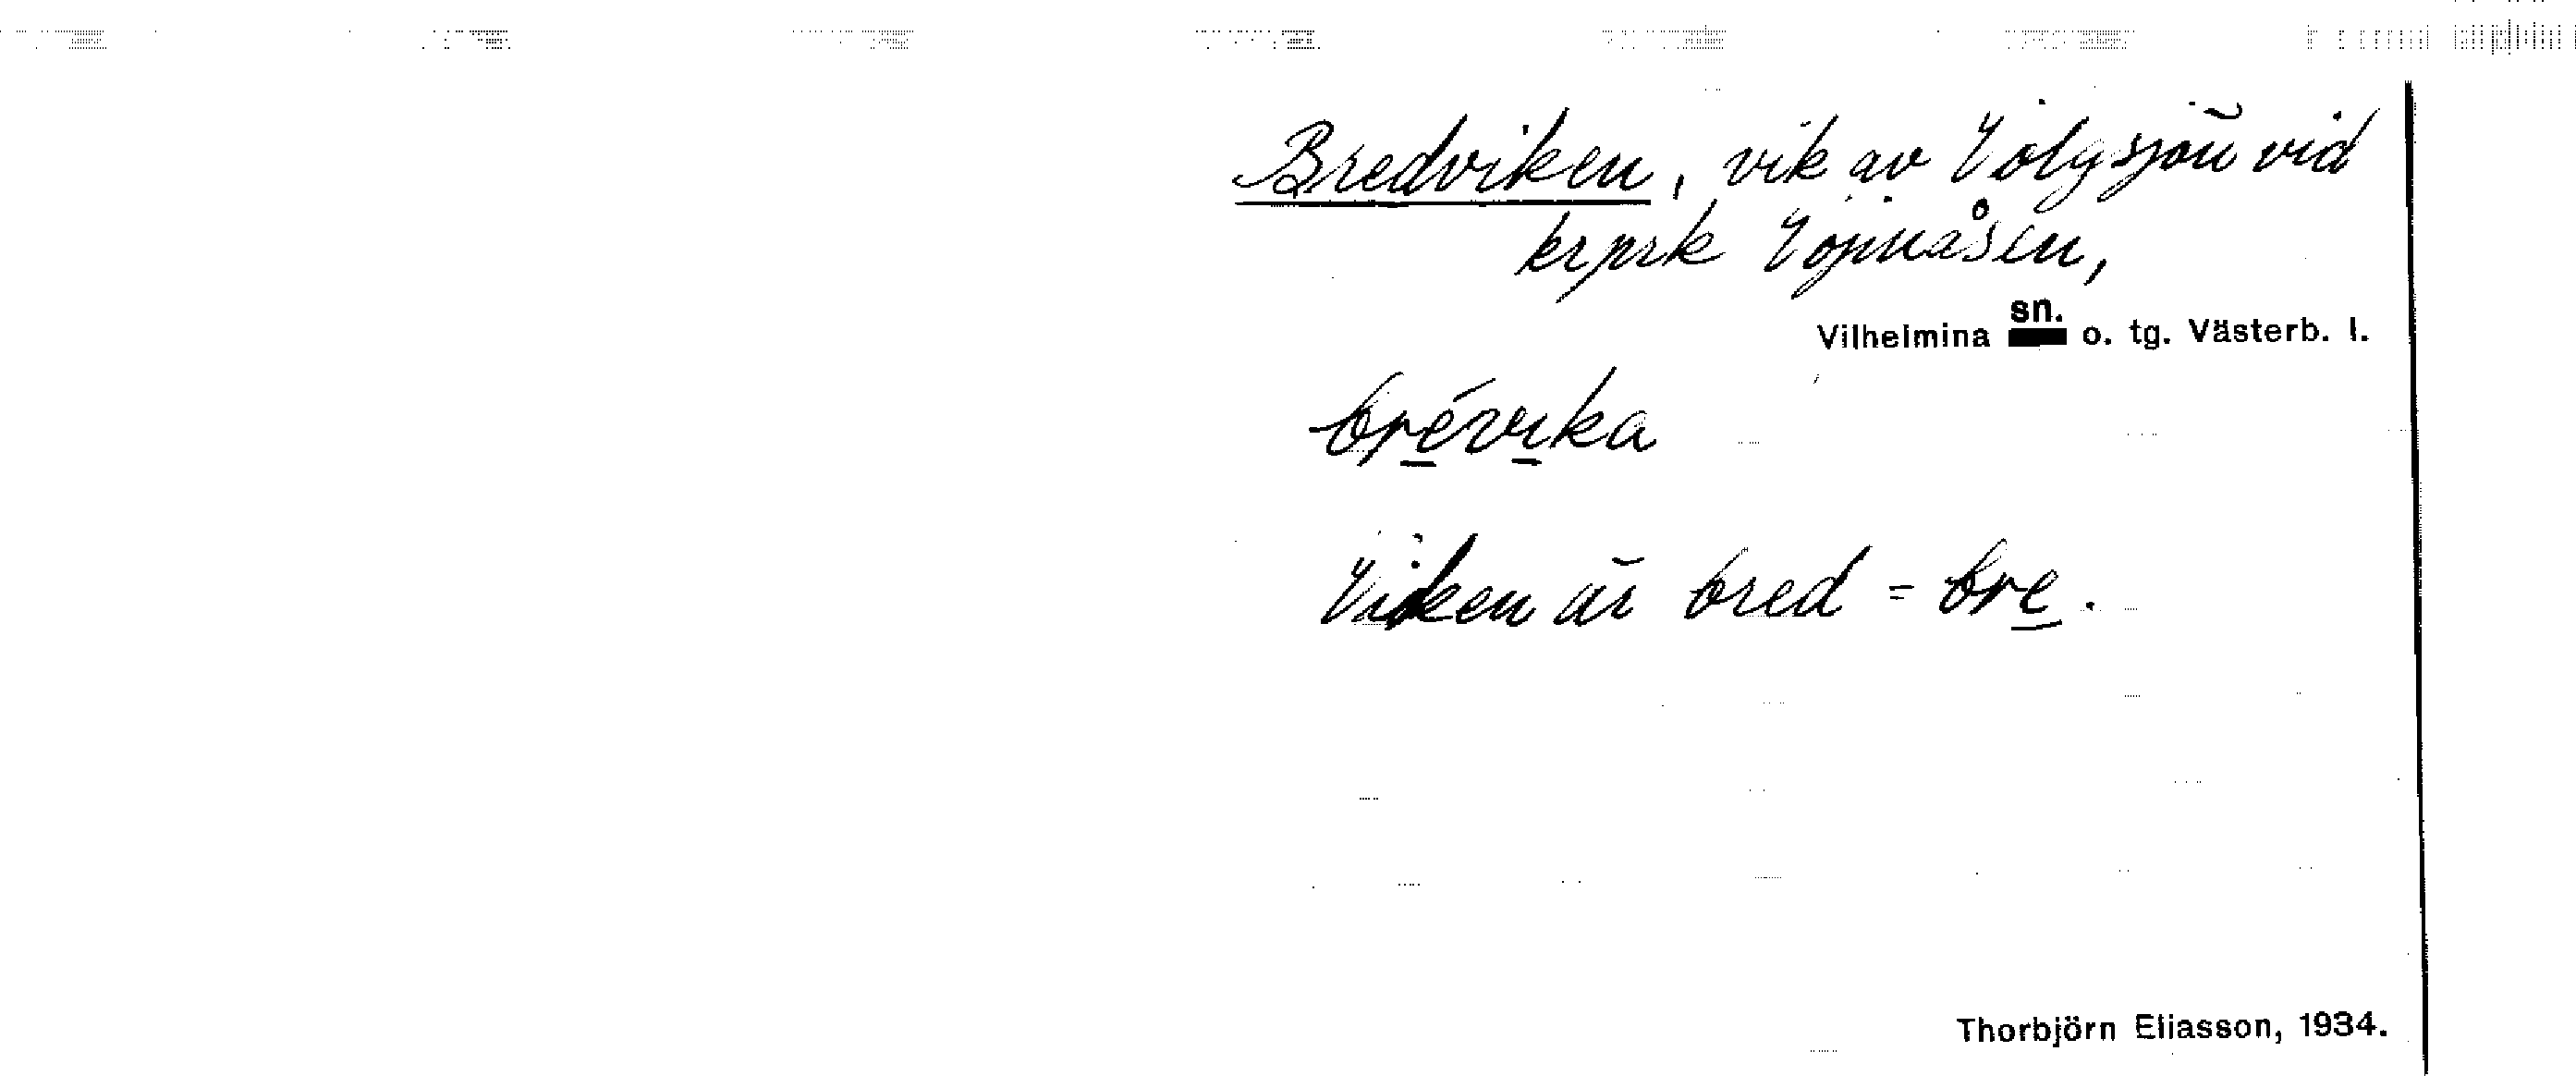 Bredviken, vik av Volgsjön vid
krprk Vojmåsen,
Vilhelmina sn. o. tg. Västerb. l.
brévika
Viken är bred = bre.
Thorbjörn Eliasson, 1934.